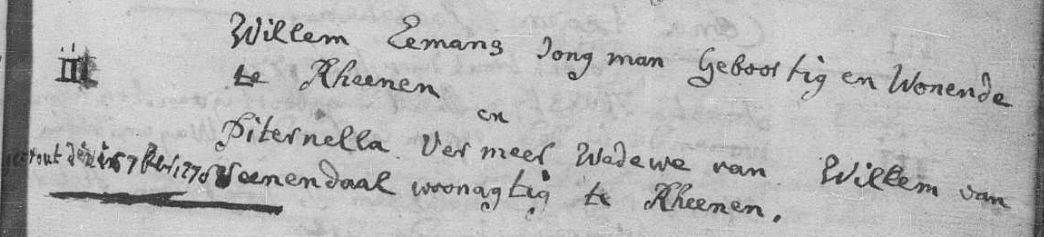 iii Willem Eemans Jong man Geboortig en Wonende
te Rheenen
en
Piternella Vermeer Wedewe van Willem van
Veenendaal woonagtig te Rheenen.